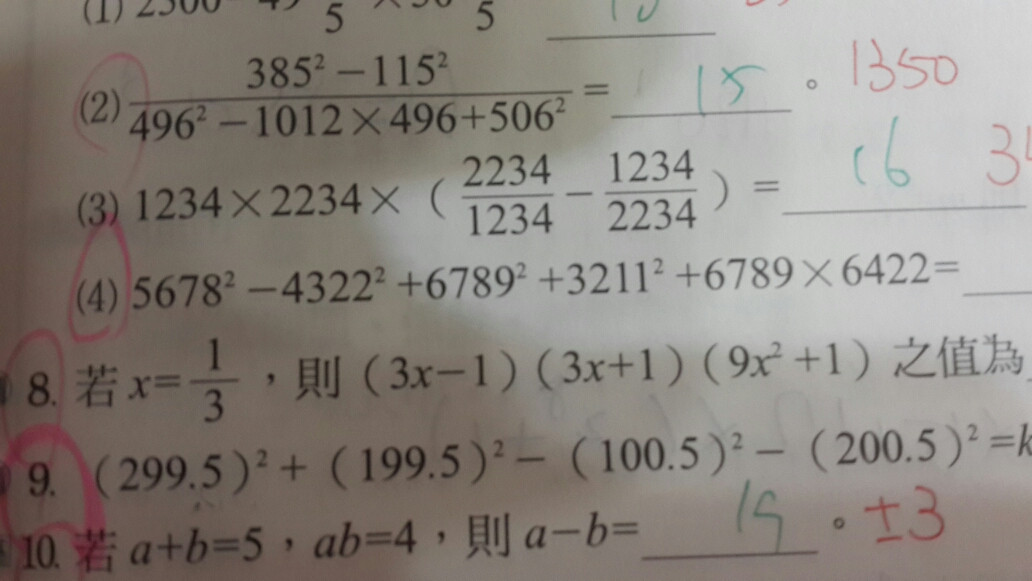 (2) \frac{385² − 115²}{496² − 1012 × 496 + 506²} = 15 。 1350
(3) 1234 × 2234 × ( \frac{2234}{1234} − \frac{1234}{2234} ) = 16
(4) 5678² − 4322² + 6789² + 3211² + 6789 × 6422 =
8. 若 x = \frac{1}{3} ，則 ( 3x − 1 ) ( 3x + 1 ) ( 9x² + 1 ) 之值為
9. ( 299.5 )² + ( 199.5 )² − ( 100.5 )² − ( 200.5 )² = k
10. 若 a + b = 5 ， ab = 4 ，則 a − b = 。 ±3